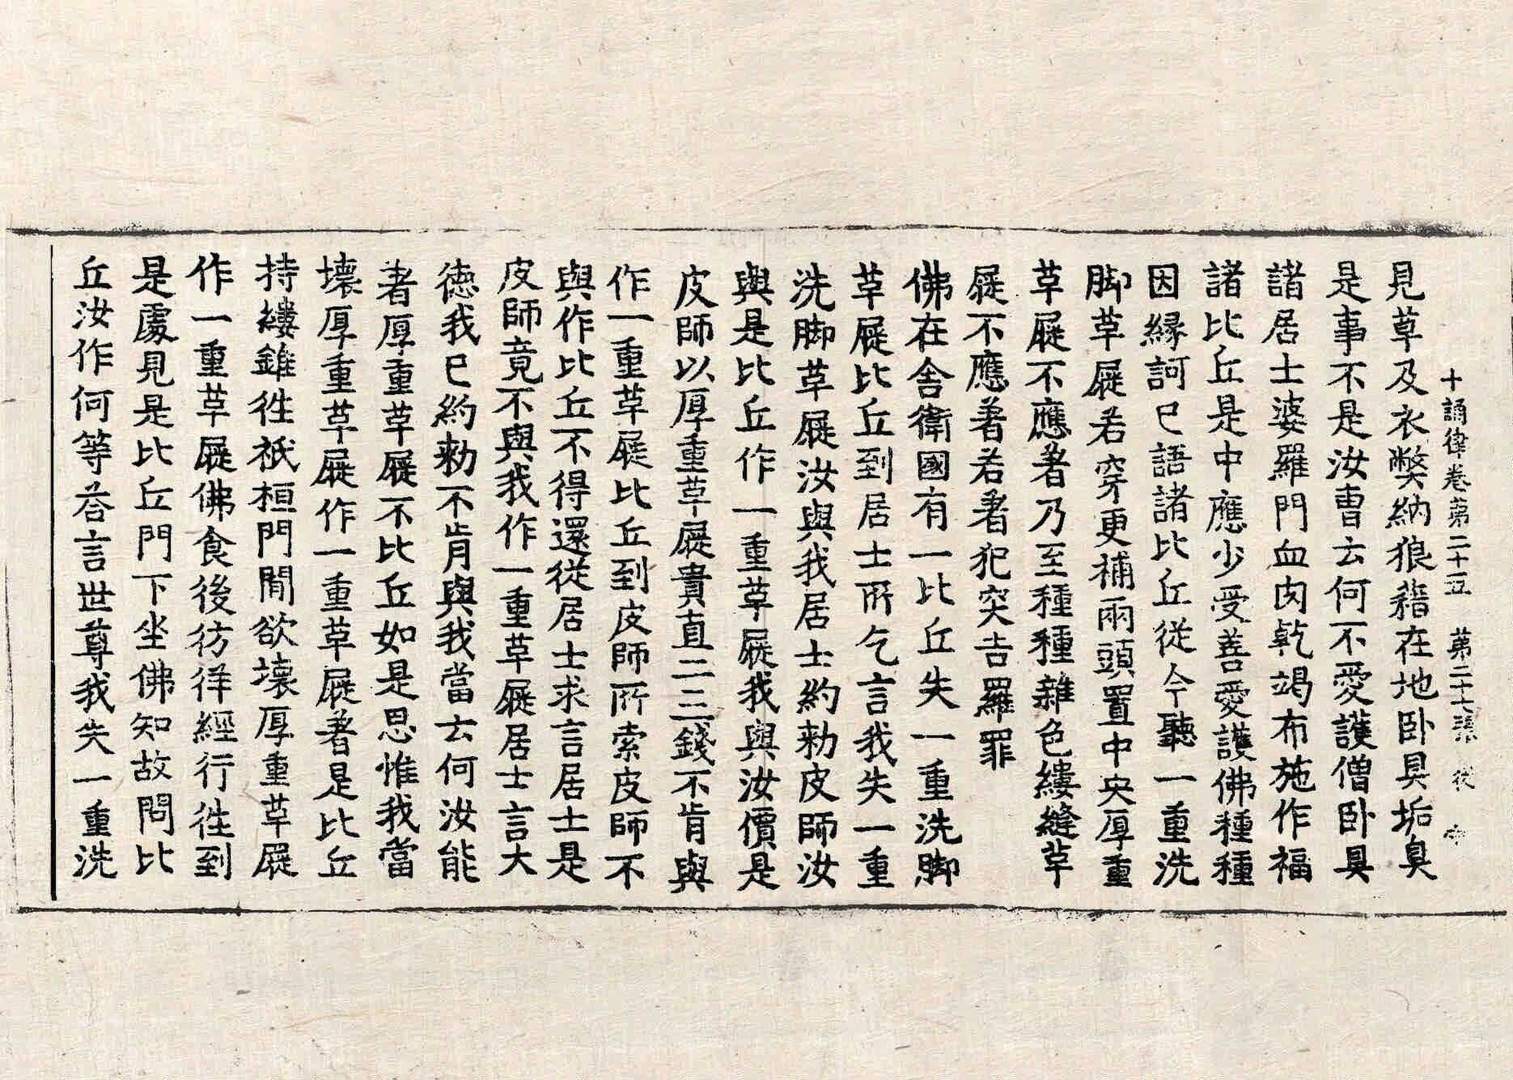 十誦律卷第二十五 第二十七張 從
見草及衣弊納狼藉在地卧具垢臭
是事不是汝曹云何不愛護僧卧具
諸居士婆羅門血肉乾竭布施作福
諸比丘是中應少受善愛護佛種種
因緣訶已語諸比丘從今聽一重洗
脚草屣若穿更補兩頭置中央厚重
草屣不應著乃至種種雜色縷縫草
屣不應著若著犯突吉羅罪
佛在舍衛國有一比丘失一重洗脚
草屣比丘到居士所乞言我失一重
洗脚草屣汝與我居士約勑皮師汝
與是比丘作一重草屣我與汝價是
皮師以厚重草屣貴直二三錢不肯與
作一重草屣比丘到皮師所索皮師不
與作比丘不得還從居士求言居士是
皮師竟不與我作一重草屣居士言大
德我已約勑不肯與我當云何汝能
著厚重草屣不比丘如是思惟我當
壞厚重草屣作一重草屣著是比丘
持縷錐往祇桓門間欲壞厚重草屣
作一重草屣佛食後彷徉經行往到
是處見是比丘門下坐佛知故問比
丘汝作何等荅言世尊我失一重洗